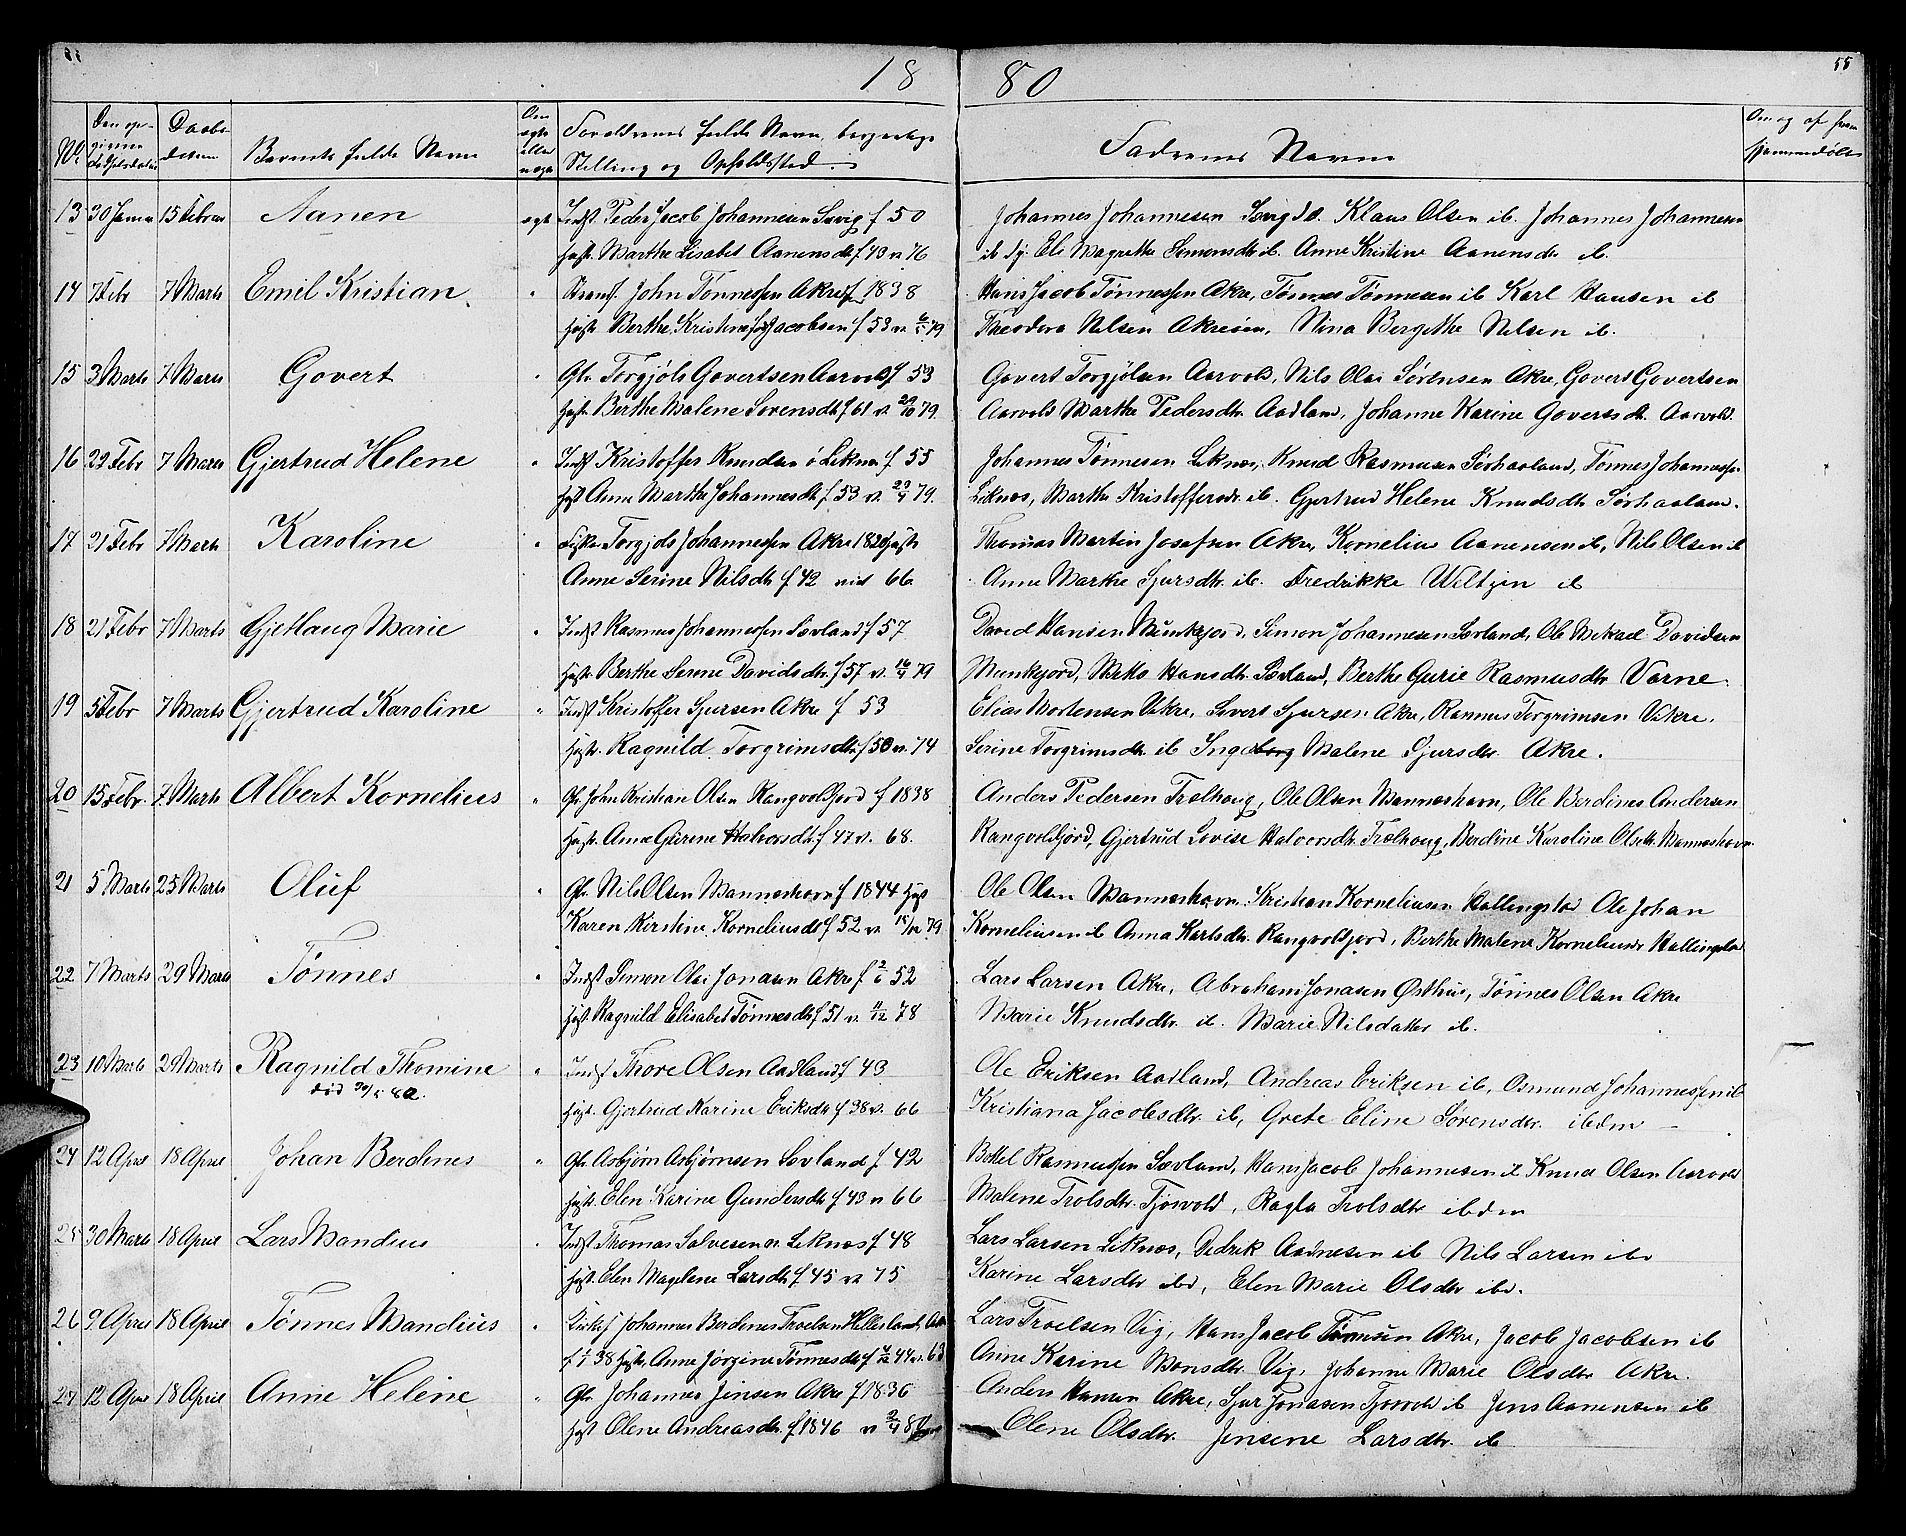 18 80
55
No. Den opgivne Fødselsdatum Daabsdatum Barnets fulde Navn Om ægte eller uægte Forældrenes fulde Navn, borgerlige Stilling og Opholdssted. Faddernes Navne
13 30 Januar 15 Februar Aanen ægte Indst. Peder Jacob Johannesen Sevig f 50 Johannes Johannesen Sevig Klaus Olsen ib. Johannes Johannesen
Hust. Marthe Lisabet Aanensdt f 49 v 76 ib Eli Magrethe Simonsdtr ib. Anne Kristine Aanensdtr ib.
14 7 Febr 7 Marts Emil Kristian " Strands. John Tønnessen Akre f 1838 Hans Jacob Tønnessen Akre, Tønnes Tønnesen ib Karl Hansen ib
Hust. Berthe Kristine Jacobsen f 53 v. 79 Theodora Nilsen Akre, Nina Bergithe Nilsen ib.
15 3 Marts 7 Marts Govert " Gbr. Torgjøls Govertsen Aarvold f 53 Govert Torgjølsen Aarvold, Nils Olai Sørensen Akre, Govert Govertsen
Hust. Berthe Malene Sørensdt f 61 v. 29/10 79. Aarvold Marthe Pedersdtr Aadland, Johanne Karine Govertsdt. Aarvold.
16 22 Febr 7 Marts Gjertrud Helene " Indst Kristoffer Knudsen ø Liknes f 55 Johannes Tønnesen Liknes, Knud Rasmusen Sørhaaland, Tønnes Johannessen
Hust Anne Marthe Johannesdt f 53 v. 79. Liknes, Marthe Kristoffersdr. ib. Gjertrud Helene Knudsdtr Sørhaaland.
17 21 Febr 7 Marts Karoline " Fisker Torgjols Johannessen Akre 1820 Hust Thomas Martin Josefsen Akre, Kornelius Aanensen ib, Nils Olsen ib
Anne Serine Nilsdtr f 42 viet 66 Anne Marthe Sjursdtr. ib. Fredrikke Weltzin ib
18 21 Febr 7 Marts Gjetlaug Marie " Indst Rasmus Johannessen Sævland f 57 David Hansen Munkejord, Simon Johannesen Sævland, Ole Mikael Davidsen
Hust. Berthe Serine Davidsdtr. f 57 v. 79 Munkejord, Hansdtr. Sævland, Berthe Gurie Rasmusdtr Varne.
19 5 Febr 7 Marts Gjertrud Karoline " Indst Kristoffer Sjursen Akre f 53 Elias Mortensen Vikre, Sivert Sjursen Akre, Rasmus Torgrimsen Vikre.
Hust. Ragnild Torgrimsdtr f 50 v. 74 Serine Torgrimsdtr ib Ingeborg Malene Sjursdtr Akre.
20 15 Febr. 7 Marts Albert Kornelius " Gbr. John Kristian Olsen Rangvoldsjord f 1838 Anders Pedersen Trolhaug, Ole Olsen Manneshavn, Ole Berdines Andersen
Hust. Anne Gurine Halvorsdtr. f 47 v. 68. Rangvoldsjord, Gjertrud Lovise Halvorsdtr. Trolhaug, Berdine Karoline Olsdtr. Manneshavn
21 5 Marts 25 Marts Oluf " Gbr. Nils Olsen Manneshavn f 1844 Hust Ole Olsen Manneshavn. Kristian Korneliusen Hallingstad Ole Johan
Karen Kirstine Korneliusdt f 52 v. 79 Korneliusen ib Anna Karlsdtr. Rangvoldsjord, Berthe Malene Korneliusdr Hallingstad
22 7 Marts 29 Marts Tønnes " Indst Simon Olai Jonasen Akre f 52 Lars Larsen Akre, Abraham Jonasen Østhus, Tønnes Olsen Akre
Hust. Ragnild Elisabet Tønnesdt f 51 v. 78 Marie Knudsdtr. ib. Marie Nilsdatter ib.
23 10 Marts 29 Marts Ragnild Thomine " Indst Thore Olsen Aadland f 43 Ole Eriksen Aadland, Andreas Eriksen ib, Osmund Johannessen ib
død 80. Hust. Gjertrud Karine Eriksdtr f 38 v. 66 Kristiana Jacobsdtr. ib, Grete Eline Sørensdtr. ibdm
24 12 April 18 April Johan Berdines " Gbr Asbjørn Asbjørnsen Sævland f 42 Bottel Rasmussen Sævland, Hans Jacob Johannesen ib Knud Olsen Aarvold
Hust. Elen Karine Gundersdtr f 43 v 66 Malene Trolsdtr. Tjøsvold, Ragla Trolsdtr ibdm
25 30 Marts 18 April Lars Mandius " Indst Thomas Salvesen Liknes f 48 Lars Larsen Liknes, Dedrik Aadnesen ib Nils Larsen ib
Hust. Elen Magelene Larsdtr f 45 v. 75 Karine Larsdtr ibd, Elen Marie Olsdtr ibd.
26 9 April 18 April Tønnes Mandius " Johannes Berdines Troelsen Hellesland, Akre Lars Troelsen Vig, Hans Jacob Tønnesen Akre, Jacob Jacobsen ib
f 38 Hust. Anne Jorgine Tønnesdtr f 44 v. 63 Anne Karine Monsdtr. Vig, Johanne Marie Olsdtr Akre.
27 12 April 18 April Anne Helene " Gbr. Johannes Jensen Akre f 1836 Anders Hansen Akre, Sjur Jonasen Tjosvold ib Jens Aanensen ib
Hust Olene Andreasdtr. f 1846 v Olene Olsdtr. Jensine Larsdtr. ib